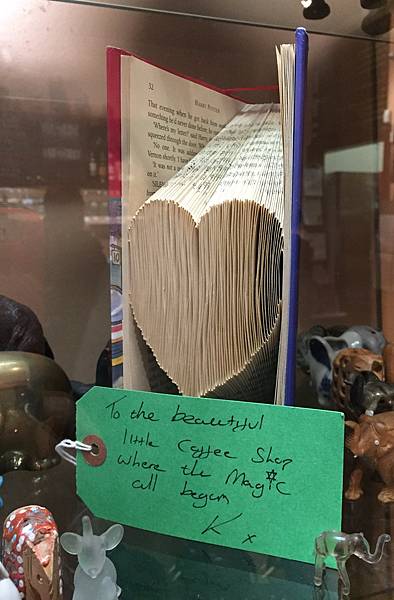 32 HARRY POTTER
That evening when he got back from
something he'd never done before; he
'Where's my letter?' said Harry
squeezed through the door. 'Who
No one. It was addre
Vernon shortly. 'I have
'It was not a
on it.'
To the beautiful
little Coffee Shop
where the Magic
all began
K x